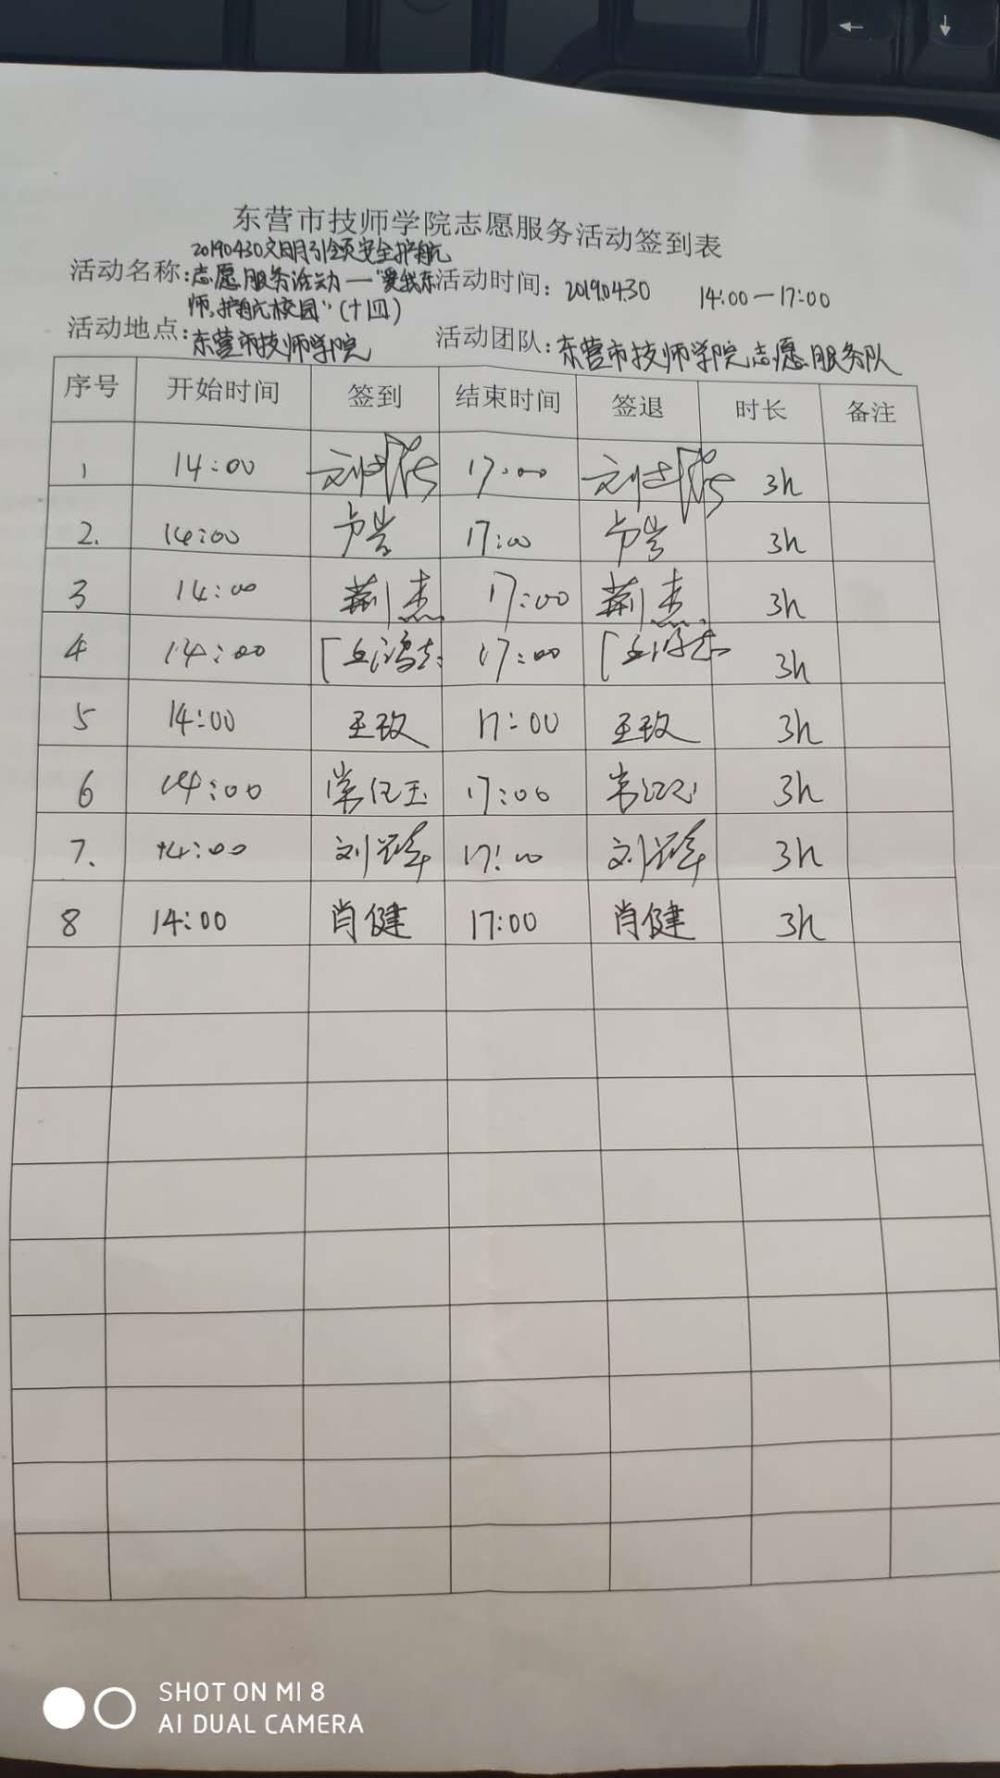 东营市技师学院志愿服务活动签到表
20190430文明引领安全护航
活动名称:志愿服务活动—"爱我东 活动时间: 20190430 14:00—17:00
师,护航校园"(十四)
活动地点: 东营市技师学院 活动团队: 东营市技师学院志愿服务队
序号 开始时间 签到 结束时间 签退 时长 备注
1 14:00 17:00 3h
2. 14:00 17:00 3h
3 14:00 荆杰 17:00 荆杰 3h
4 14:00 17:00 3h
5 14:00 王玫 17:00 王玫 3h
6 14:00 17:00 3h
7. 14:00 17:00 3h
8 14:00 肖健 17:00 肖健 3h
SHOT ON MI 8
AI DUAL CAMERA